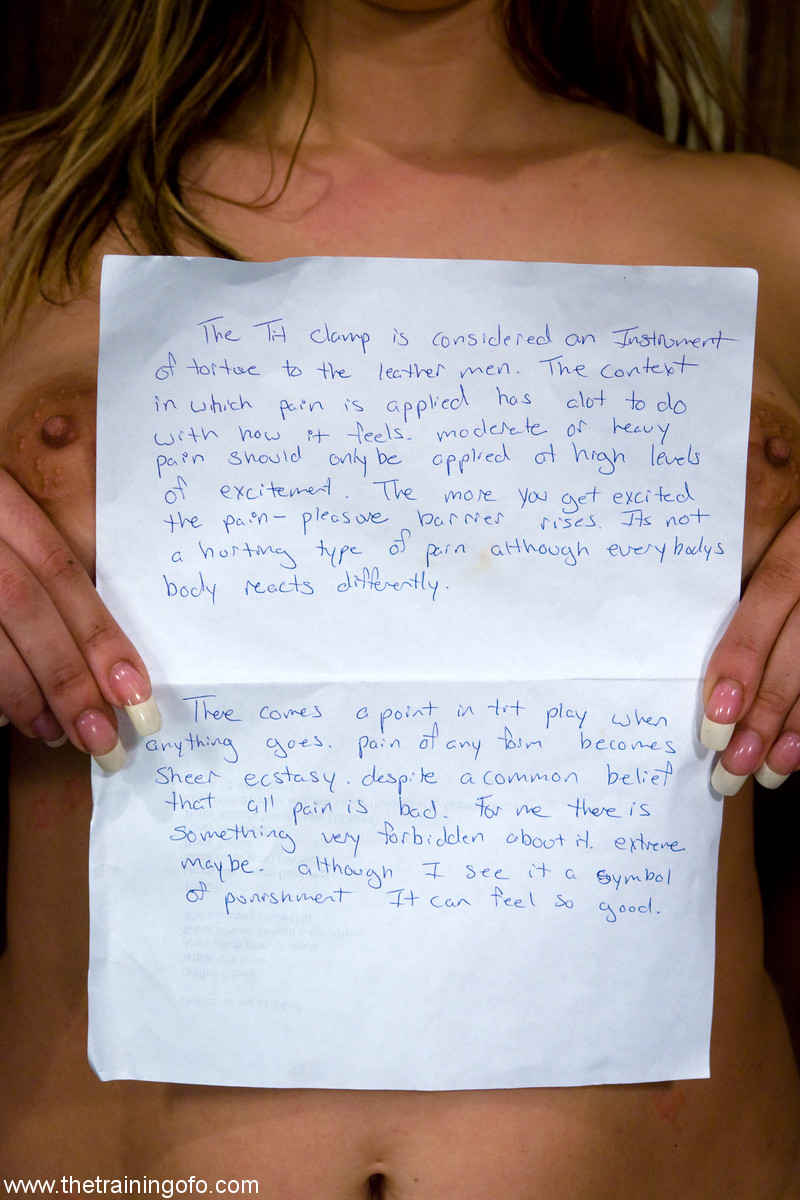 The Tit clamp is considered an Instrument
of tortue to the leather men. The context
in which pain is applied has alot to do
with how it feels. moderate or heavy
pain should only be applied at high levels
of excitement. The more you get excited
the pain-pleasure barrier rises. Its not
a hurting type of pain although everybodys
body reacts differently.
There comes a point in tit play when
anything goes. pain of any form becomes
sheer ecstasy. despite a common belief
that all pain is bad. For me there is
something very forbidden about it. extreme
maybe. although I see it a symbol
of punishment It can feel so good.
www.thetrainingofo.com